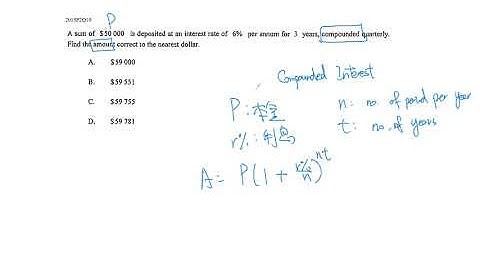 P
A sum of $50 000 is deposited at an interest rate of 6% per annum for 3 years, compounded quarterly.
Find the amount correct to the nearest dollar.
A. $59 000
B. $59 551
C. $59 755
D. $59 781
Compounded Interest
P : 本金
r% : 利息
n : no. of period per year
t : no. of years
A = P(1 + r%/n)^nt